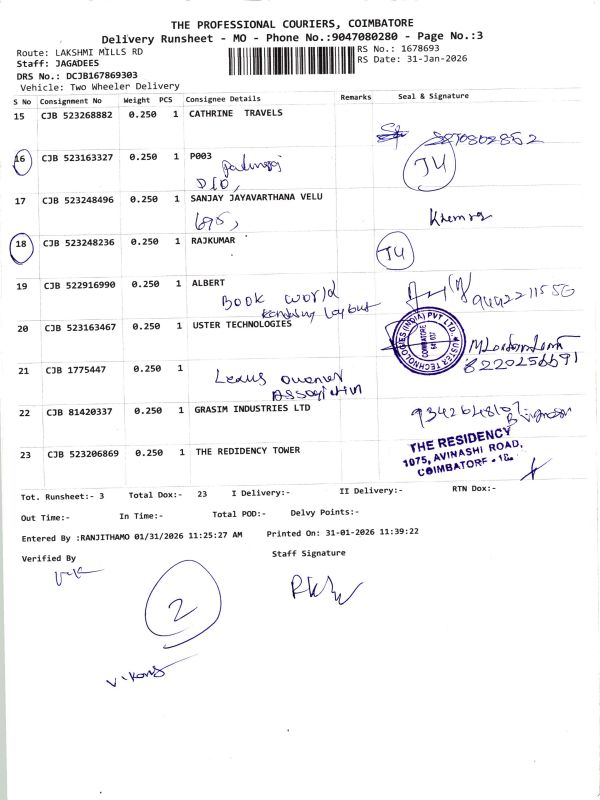 THE PROFESSIONAL COURIERS, COIMBATORE
Delivery Runsheet - MO - Phone No.:9047080280 - Page No.:3
Route: LAKSHMI MILLS RD
RS No.: 1678693
Staff: JAGADEES
RS Date: 31-Jan-2026
DRS No.: DCJB167869303
Vehicle: Two Wheeler Delivery
S No Consignment No Weight PCS Consignee Details Remarks Seal & Signature
15 CJB 523268882 0.250 1 CATHRINE TRAVELS
16 CJB 523163327 0.250 1 P003
D10,
JU
17 CJB 523248496 0.250 1 SANJAY JAYAVARTHANA VELU
695,
18 CJB 523248236 0.250 1 RAJKUMAR
JU
19 CJB 522916990 0.250 1 ALBERT
Book world
9442211550
20 CJB 523163467 0.250 1 USTER TECHNOLOGIES
USTER TECHNOLOGIES (INDIA) PVT LTD.
COIMBATORE
641 037
8220256691
21 CJB 1775447 0.250 1
Lexus owener
Association
22 CJB 81420337 0.250 1 GRASIM INDUSTRIES LTD
9342648107
23 CJB 523206869 0.250 1 THE REDIDENCY TOWER
THE RESIDENCY
1075, AVINASHI ROAD,
COIMBATORE - 18.
Tot. Runsheet:- 3 Total Dox:- 23 I Delivery:- II Delivery:- RTN Dox:-
Out Time:- In Time:- Total POD:- Delvy Points:-
Entered By :RANJITHAMO 01/31/2026 11:25:27 AM Printed On: 31-01-2026 11:39:22
Verified By Staff Signature
2